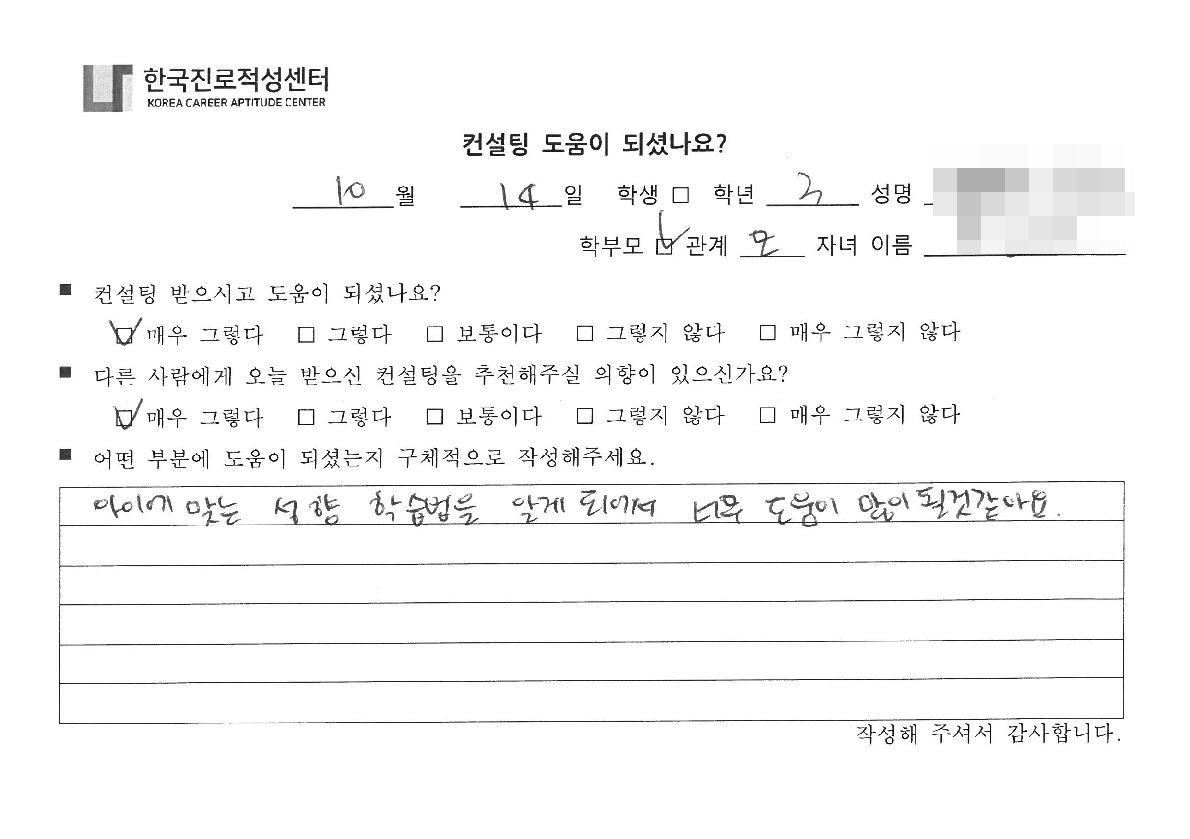 한국진로적성센터
KOREA CAREER APTITUDE CENTER
컨설팅 도움이 되셨나요?
10 월 14 일 학생 □ 학년 3 성명
학부모 ☑ 관계 모 자녀 이름
■ 컨설팅 받으시고 도움이 되셨나요?
☑ 매우 그렇다 □ 그렇다 □ 보통이다 □ 그렇지 않다 □ 매우 그렇지 않다
■ 다른 사람에게 오늘 받으신 컨설팅을 추천해주실 의향이 있으신가요?
☑ 매우 그렇다 □ 그렇다 □ 보통이다 □ 그렇지 않다 □ 매우 그렇지 않다
■ 어떤 부분에 도움이 되셨는지 구체적으로 작성해주세요.
아이에 맞는 성향 학습법을 알게 되에서 너무 도움이 많이 될것같아요.
작성해 주셔서 감사합니다.